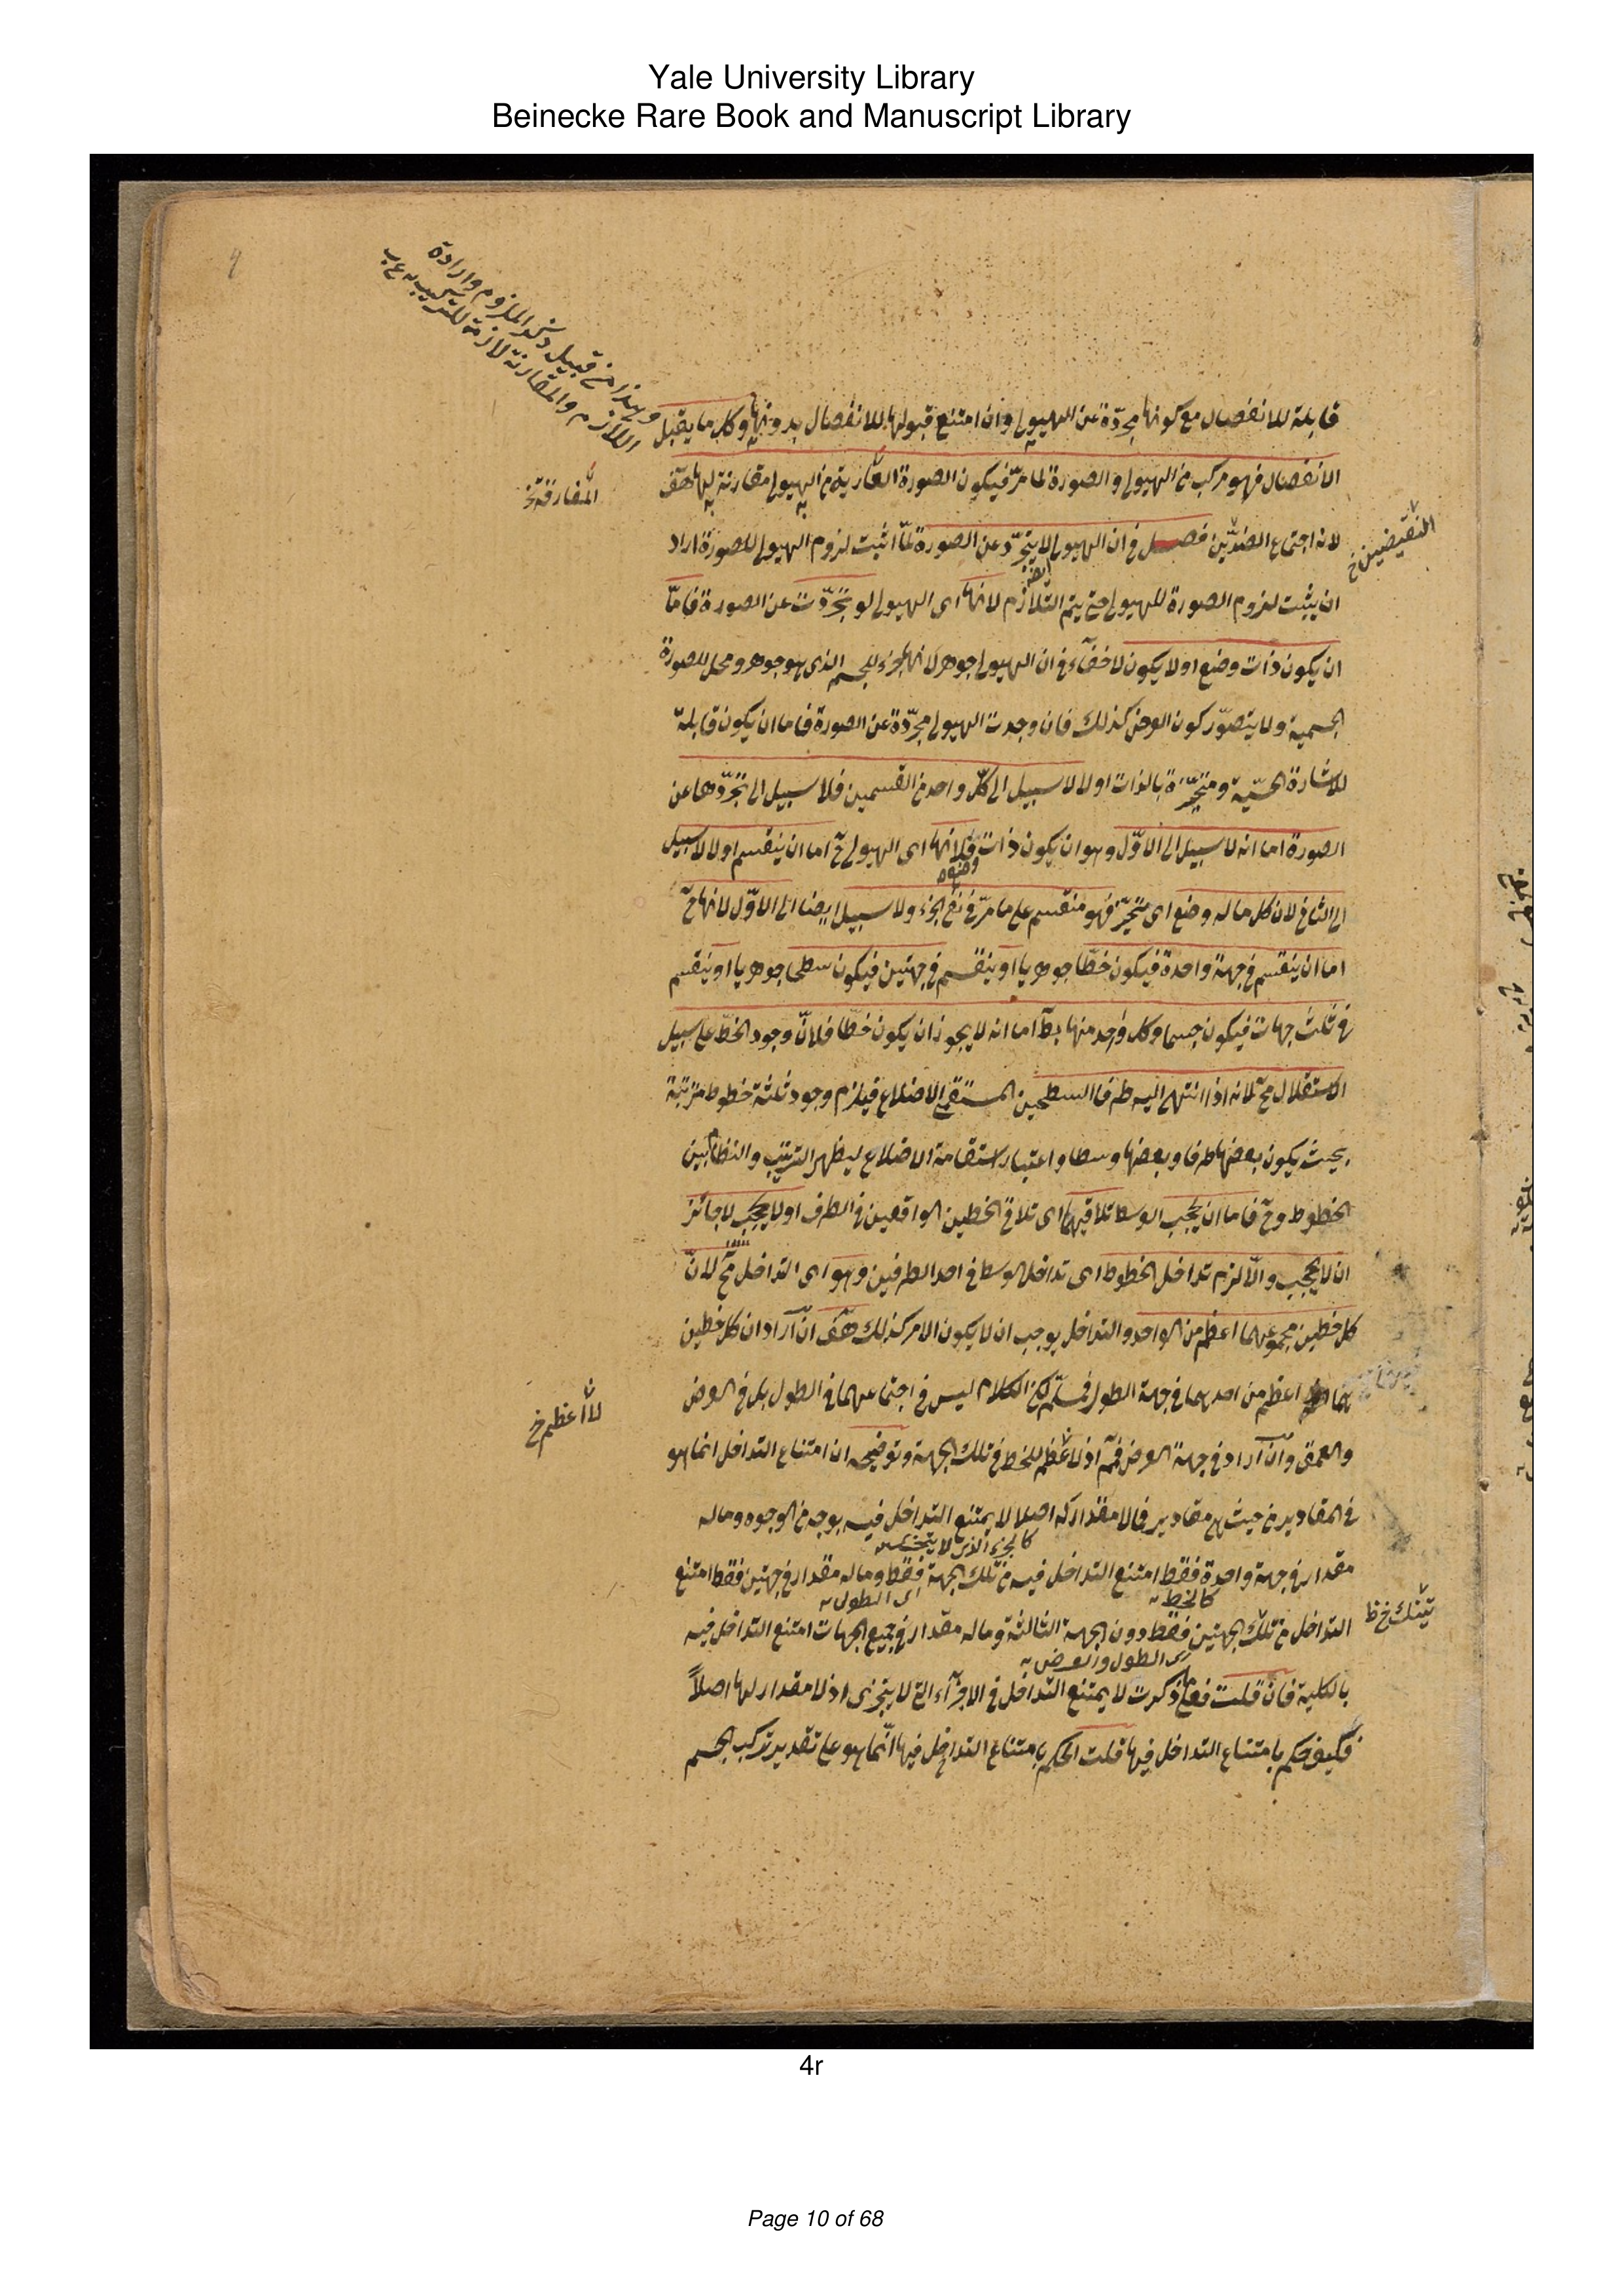 Yale University Library
Beinecke Rare Book and Manuscript Library
وهذا من قبيل ذكر الملزوم وارادة
اللازم والمقارنة لازمة للتركيب
قابلة للانفصال مع كونها مجرّدة عن الهيولى وان امتنع قبولها للانفصال بدونها وكل ما يقبل
الانفصال فهو مركب من الهيولى والصورة لما مرّ فيكون الصورة العارية من الهيولى مقارنة لها هف
المفارقة خ
لانه اجتماع الضدّين فصل فى ان الهيولى لا يتجرّد عن الصورة لمّا اثبت لزوم الهيولى للصورة اراد
النقيضين خ
ان يثبت لزوم الصورة للهيولى حتى يتم التلازم لانها اى الهيولى لو تجرّدت عن الصورة فامّا
ان يكون ذات وضع او لا يكون لا خفآء فى ان الهيولى جوهر لانها جزء للجسم الذى هو جوهر ومحل للصورة
الجسمية ولا يتصوّر كون العرض كذلك فان وجدت الهيولى مجرّدة عن الصورة فاما ان يكون قابلة
للاشارة الحسّية ومتحيّزة بالذات او لا لا سبيل الى كلّ واحد من القسمين فلا سبيل الى تجرّدها عن
الصورة اما انه لا سبيل الى الاوّل وهو ان يكون ذات فلانها اى الهيولى ح اما ان ينقسم او لا لا سبيل
وضع
الى الثانى لان كل ما له وضع اى متحيّز فهو منقسم على ما مرّ فى نفى الجزء ولا سبيل ايضا الى الاوّل لانها ح
اما ان ينقسم فى جهة واحدة فيكون خطّا جوهريا او ينقسم فى جهتين فيكون سطحا جوهريا او ينقسم
فى ثلث جهات فيكون جسما وكل واحد منها بط اما انه لا يجوز ان يكون خطّا فلانّ وجود الخطّ على سبيل
الاستقلال مح لانه اذا انتهى اليه طرفا السطحين المستقيمى الاضلاع فيلزم وجود ثلثة خطوط مترتبة
بحيث يكون بعضها طرفا وبعضها وسطا واعتبار استقامة الاضلاع ليظهر الترتيب والنظام بين
الخطوط وح فاما ان يحجب الوسط تلاقيهما اى تلاقى الخطين الواقعين فى الطرف او لا يحجب لا جائز
ان لا يحجب والّا لزم تداخل الخطوط اى تداخل الوسط فى احد الطرفين وهو اى التداخل مح لانّ
كل خطين مجموعهما اعظم من الواحد والتداخل يوجب ان لا يكون الامر كذلك هف ان اراد ان كل خطين
هما اعظم من احدهما فى جهة الطول فمسلّم لكن الكلام ليس فى اجتماعهما فى الطول بل فى العرض
لا اعظم خ
والعمق وان اراد فى جهة العرض فمم اذ لا عظم للخط فى تلك الجهة وتوضيحه ان امتناع التداخل انما هو
فى المقادير من حيث هى مقادير فما لا مقدار له اصلا لا يمتنع التداخل فيه بوجه من الوجوه وما له
كالجزء الذى لا يتجزى
مقدار فى جهة واحدة فقط امتنع التداخل فيه من تلك الجهة فقط وما له مقدار فى جهتين فقط امتنع
كالخط
اى الطول
التداخل من تلك الجهتين فقط دون الجهة الثالثة وما له مقدار فى جميع الجهات امتنع التداخل فيه
تينك خ ظ
اى الطول والعرض
بالكلية فان قلت فعلى ما ذكرت لا يمتنع التداخل فى الاجزآء التى لا يتجزى اذ لا مقدار لها اصلاً
فكيف حكم بامتناع التداخل فيها قلت الحكم بامتناع التداخل فيها انّما هو على تقدير تركب الجسم
4r
Page 10 of 68